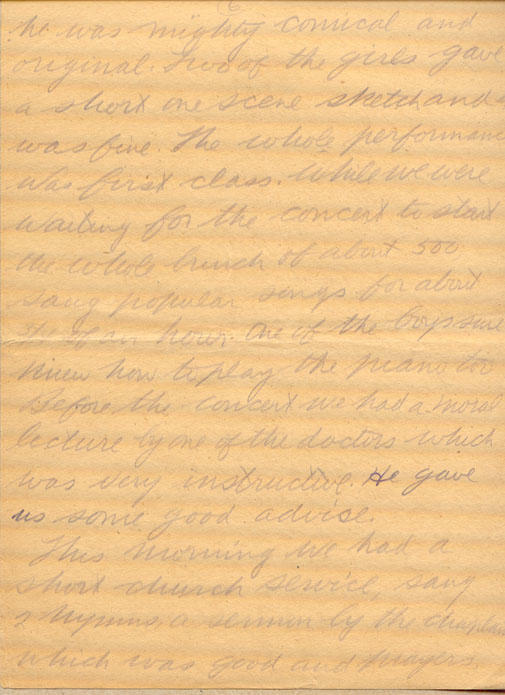 6
he was mighty comical and
original. Two of the girls gave
a short one scene sketch and
was fine. The whole performanc
was first class. While we were
waiting for the concert to start
the whole bunch of about 500
sang popular songs for about
of an hour. One of the boys sure
knew how to play the piano too
Before the concert we had a moral
lecture by one of the doctors which
was very instructive. He gave
us some good advise.
This morning we had a
short church service, sang
2 hymns, a sermon by the chaplain
which was good and prayers.